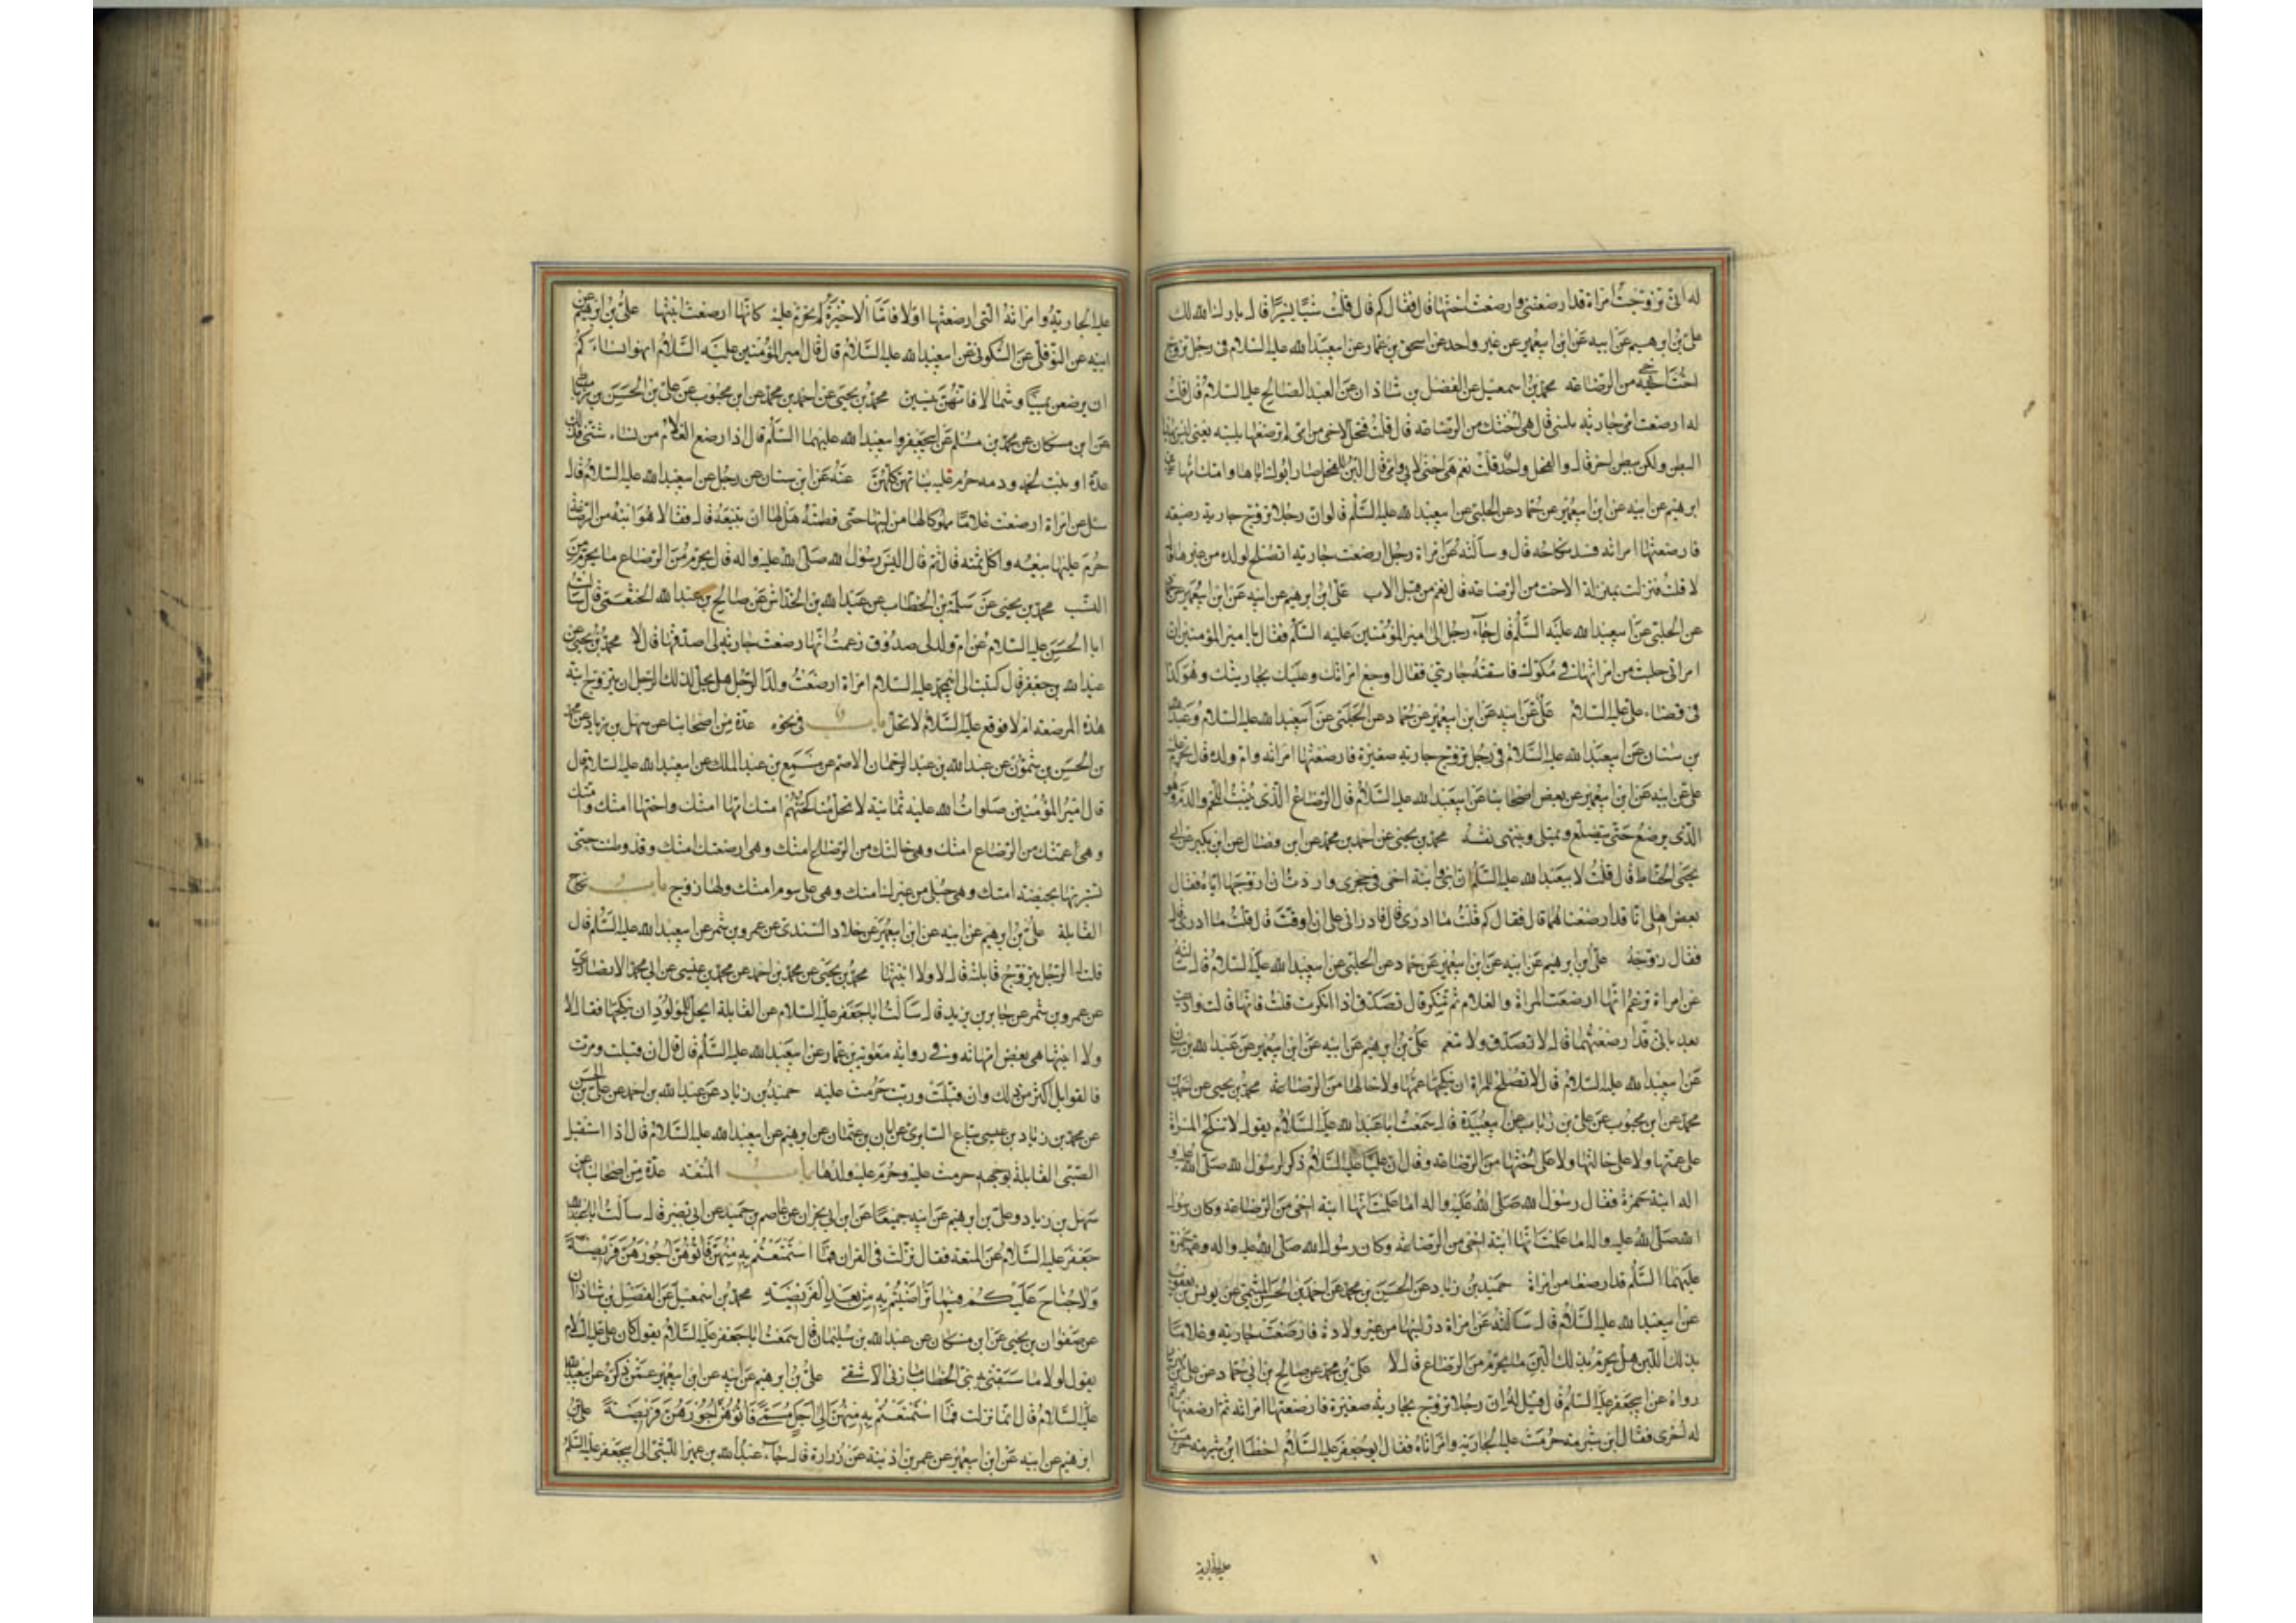 له انى تزوجت امراة قد ارضعتنى وارضعت اختها قال فقال كم قال قلت شيئا يسيرا قال بارك الله لك
على بن ابرهيم عن ابيه عن ابن ابيعمير عن غير واحد عن اسحق بن عمار عن ابيعبد الله عليه السلام فى رجل تزوج
اخت اخيه من الرضاعه محمد بن اسمعيل عن الفضل بن شاذان عن العبد الصالح عليه السلام قال قلت
له ارضعت امى جارية بلبنى قال هى اختك من الرضاعه قال قلت فتحل لاخى من امى لم ترضعها بلبنه يعنى
البطن ولكن ببطن اخر قال والفحل واحد قلت نعم هى اختى لابى وامى قال اللبن للفحل صار ابوك اباها وامك امها
ابرهيم عن ابيه عن ابن ابيعمير عن حماد عن الحلبى عن ابيعبد الله عليه السلم قال لو ان رجلا تزوج جارية رضيعه
فارضعتها امراته فسد نكاحه قال وسالته عن امراة رجل ارضعت جارية اتصلح لولده من غيرها قال
لا قلت فنزلت بمنزلة الاخت من الرضاعه قال نعم من قبل الاب على بن ابرهيم عن ابيه عن ابن ابيعمير عن حماد
عن الحلبى عن ابيعبد الله عليه السلم قال جاء رجل الى امير المؤمنين عليه السلم فقال يا امير المؤمنين ان
امراتى حلبت من لبنها فى مكوك فاسقته جاريتى فقال اوجع امراتك وعليك بجاريتك وهو كذا
فى قضاء على عليه السلام على عن ابيه عن ابن ابيعمير عن حماد عن الحلبى عن ابيعبد الله عليه السلام وعبد الله
بن سنان عن ابيعبد الله عليه السلام فى رجل تزوج جارية صغيرة فارضعتها امراته وام ولده قال تحرم عليه
على عن ابيه عن ابن ابيعمير عن بعض اصحابنا عن ابيعبد الله عليه السلام قال الرضاع الذى ينبت اللحم والدم هو
الذى يرضع حتى يتضلع ويمتلى وينتهى نفسه محمد بن يحيى عن احمد بن محمد عن ابن فضال عن ابن بكير عن ابى
يحيى الحناط قال قلت لابيعبد الله عليه السلم ان ابنى وابنة اخى فى حجرى واردت ان ازوجها اياه فقال
بعض اهلى انا قد ارضعناهما قال فقال كم قلت ما ادرى قال فادرانى على ان اوقت قال قلت ما ادرى قال
فقال زوجه على بن ابرهيم عن ابيه عن ابن ابيعمير عن حماد عن الحلبى عن ابيعبد الله عليه السلام قال سالته
عن امراة تزعم انها ارضعت المراة والغلام ثم تنكر قال تصدق اذا انكرت قلت فانها قالت وادعت
بعد بانى قد ارضعتهما قال لا تصدق ولا تنعم على بن ابرهيم عن ابيه عن ابن ابيعمير عن عبد الله بن سنان
عن ابيعبد الله عليه السلام قال لا تصلح للمراة ان ينكحها عمها ولا خالها من الرضاعة محمد بن يحيى عن احمد بن
محمد عن ابن محبوب عن على بن رئاب عن ابيعبيدة قال سمعت ابا عبد الله عليه السلام يقول لا تنكح المراة
على عمتها ولا على خالتها ولا على اختها من الرضاعه وقال ان عليا عليه السلام ذكر لرسول الله صلى الله عليه و
اله ابنة حمزة فقال رسول الله صلى الله عليه واله اما علمت انها ابنة اخى من الرضاعه وكان رسول
الله صلى الله عليه واله اما علمت انها ابنة اخى من الرضاعه وكان رسول الله صلى الله عليه واله وعمه حمزة
عليهما السلم قد ارضعا من امراة حميد بن زياد عن الحسين بن محمد عن احمد بن الحسن الميثمى عن يونس بن يعقوب
عن ابيعبد الله عليه السلام قال سالته عن امراة در لبنها من غير ولادة فارضعت جارية وغلاما
بذلك اللبن هل يحرم بذلك اللبن ما يحرم من الرضاع قال لا على بن محمد عن صالح بن ابى حماد عن على بن مهزيار
رواه عن ابيجعفر عليه السلم قال قيل له ان رجلا تزوج بجارية صغيرة فارضعتها امراته ثم ارضعتها امراة
له اخرى فقال ابن شبرمه حرمت عليه الجارية وامراتاه فقال ابو جعفر عليه السلام اخطا ابن شبرمه حرمت
عليه الجارية
عليه الجارية وامراته التى ارضعتها اولا فاما الاخيرة لم تحرم عليه كانها ارضعت ابنتها على بن ابرهيم عن
ابيه عن النوفلى عن السكونى عن ابيعبد الله عليه السلام قال قال امير المؤمنين عليه السلام انهوا نساءكم
ان يرضعن يمينا وشمالا فانهن ينسين محمد بن يحيى عن احمد بن محمد عن ابن محبوب عن على بن الحسن بن رباط
عن ابن مسكان عن محمد بن مسلم عن ابيجعفر وابيعبد الله عليهما السلم قال اذا رضع الغلام من نساء شتى فكان ذلك
عدة او نبت لحمه ودمه حرم عليه بناتهن كلهن عنه عن ابن سنان عن رجل عن ابيعبد الله عليه السلام قال
سئل عن امراة ارضعت غلاما مملوكا لها من لبنها حتى فطمته هل لها ان تبيعه قال فقال لا هو ابنها من الرضاعة
حرم عليها بيعه واكل ثمنه قال ثم قال اليس رسول الله صلى الله عليه واله قال يحرم من الرضاع ما يحرم من
النسب محمد بن يحيى عن سلمة بن الخطاب عن عبد الله بن الخداش عن صالح بن عبد الله الخثعمى قال سالت
ابا الحسن عليه السلام عن ام ولد لى صدوق زعمت انها ارضعت جارية لى اصدقها قال لا محمد بن يحيى عن
عبد الله بن جعفر قال كتبت الى ابيمحمد عليه السلام امراة ارضعت ولدا لرجل هل يحل لذلك الرجل ان يتزوج ابنة
هذه المرضعة ام لا فوقع عليه السلام لا تحل باب فى نحوه عدة من اصحابنا عن سهل بن زياد عن محمد
بن الحسن بن شمون عن عبد الله بن عبد الرحمان الاصم عن مسمع بن عبد الملك عن ابيعبد الله عليه السلام قال
قال امير المؤمنين صلوات الله عليه ثمانية لا تحل مناكحتهم امتك امها امتك واختها امتك وامتك
وهى عمتك من الرضاع امتك وهى خالتك من الرضاع امتك وهى ارضعتك امتك وقد وطئت حتى
تستبريها بحيضة امتك وهى حبلى من غيرك امتك وهى على سوم امتك ولها زوج باب نكاح
القابلة على بن ابرهيم عن ابيه عن ابن ابيعمير عن خلاد السندى عن عمرو بن شمر عن ابيعبد الله عليه السلم قال
قلت له الرجل يتزوج قابلته قال لا ولا ابنتها محمد بن يحيى عن محمد بن احمد عن محمد بن عيسى عن ابى محمد الانصارى
عن عمرو بن شمر عن جابر بن يزيد قال سالت ابا جعفر عليه السلام عن القابلة ايحل للمولود ان ينكحها فقال لا
ولا ابنتها هى بعض امهاته وفى رواية معوية بن عمار عن ابيعبد الله عليه السلم قال قال ان قبلت ومرت
فالقوابل اكثر من ذلك وان قبلت وربت حرمت عليه حميد بن زياد عن عبد الله بن احمد عن على بن الحسن
عن محمد بن زياد بن عيسى بياع السابرى عن ابان بن عثمان عن ابرهيم عن ابيعبد الله عليه السلام قال اذا استقبل
الصبى القابلة بوجهه حرمت عليه وحرم عليه ولدها باب المتعه عدة من اصحابنا عن
سهل بن زياد وعلى بن ابرهيم عن ابيه جميعا عن ابن ابى نجران عن عاصم بن حميد عن ابى بصير قال سالت ابا
جعفر عليه السلام عن المتعة فقال نزلت فى القران فما استمتعتم به منهن فاتوهن اجورهن فريضة
ولا جناح عليكم فيما تراضيتم به من بعد الفريضة محمد بن اسمعيل عن الفضل بن شاذان
عن صفوان بن يحيى عن ابن مسكان عن عبد الله بن سليمان قال سمعت ابا جعفر عليه السلام يقول كان على عليه السلام
يقول لولا ما سبقنى به بنى الخطاب ما زنى الا شقى على بن ابرهيم عن ابيه عن ابن ابيعمير عمن ذكره عن ابيعبد الله
عليه السلام قال انما نزلت فما استمتعتم به منهن الى اجل مسمى فاتوهن اجورهن فريضة على بن
ابرهيم عن ابيه عن ابن ابيعمير عن عمر بن اذينة عن زرارة قال جاء عبد الله بن عمير الليثى الى ابيجعفر عليه السلم